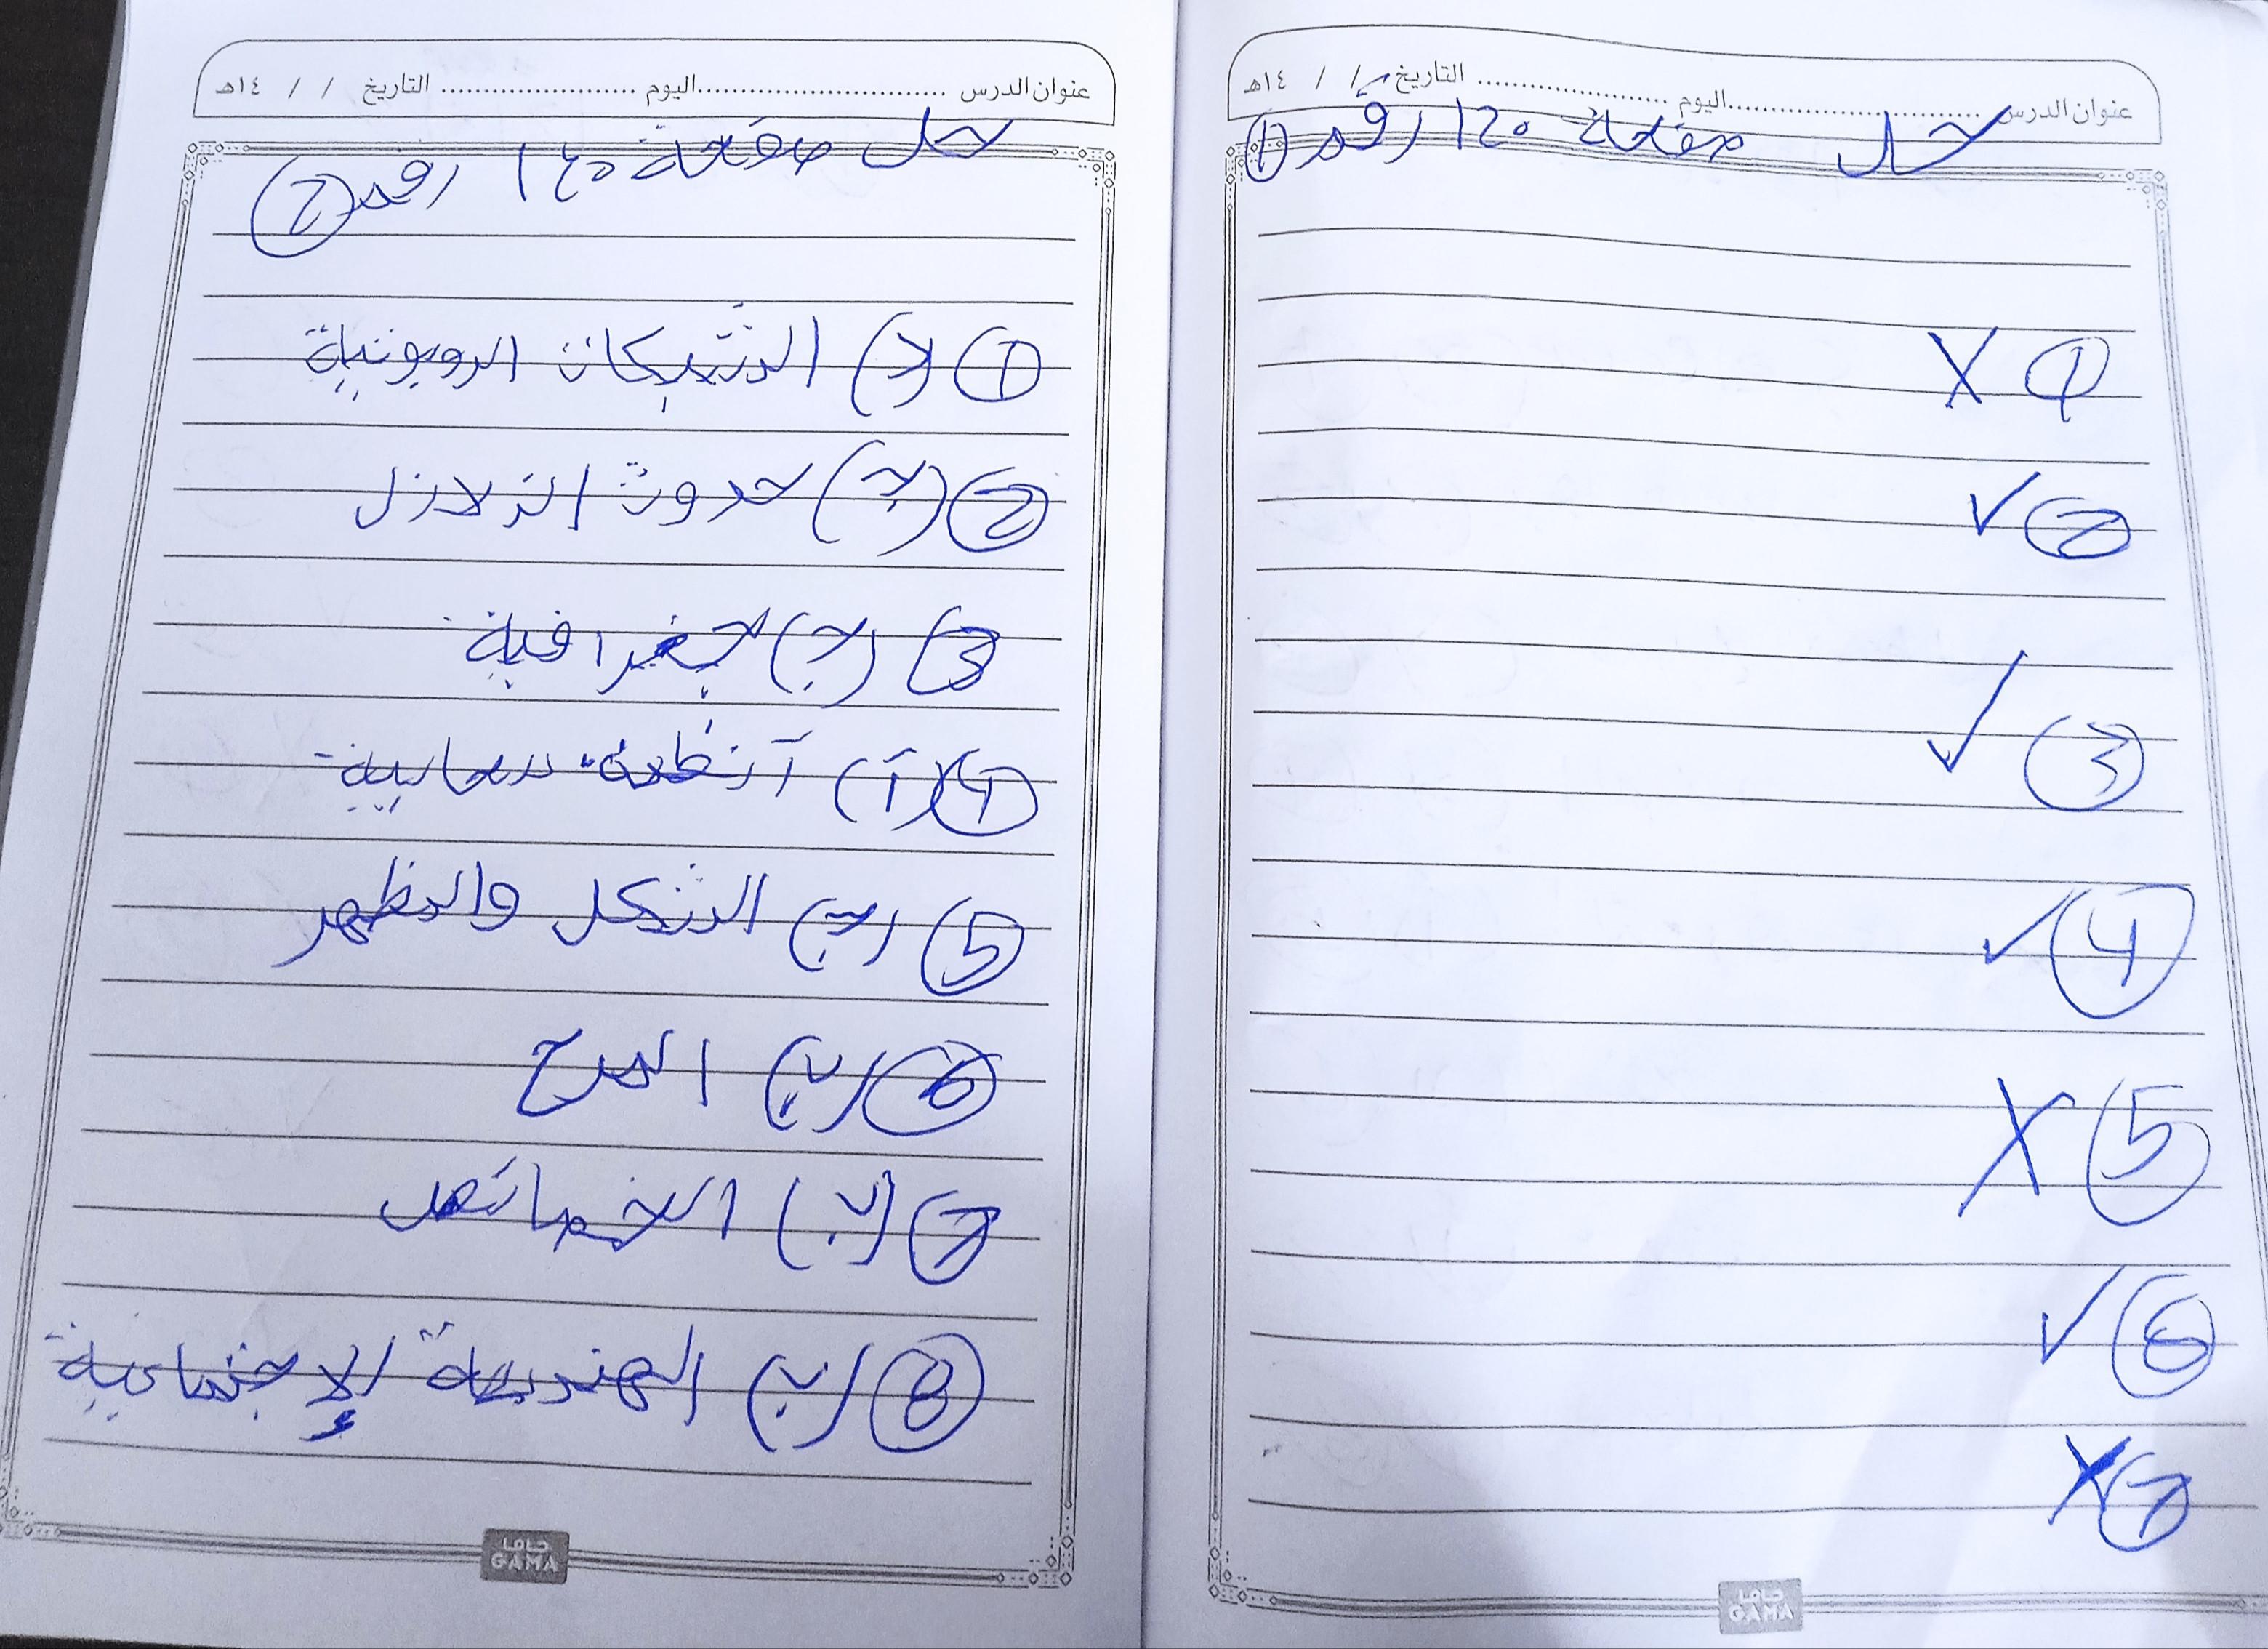 عنوان الدرس ........ اليوم ........ التاريخ / / ١٤هـ
حل صفحة ١٢٠ رقم ①
① X
② ✓
③ ✓
④ ✓
⑤ X
⑥ ✓
⑦ X
جاما
GAMA
عنوان الدرس ........ اليوم ........ التاريخ / / ١٤هـ
حل صفحة رقم ②
① ( ) الشبكات الروبوتية
② (ج) حدوث الزلازل
③ (ج) جغرافية
④ (أ) أنظمة سحابية
⑤ (ب) الشكل والمظهر
⑥ (ب)
⑦ (ب) الخصائص
⑧ (ب) الهندسة الإجتماعية
جاما
GAMA